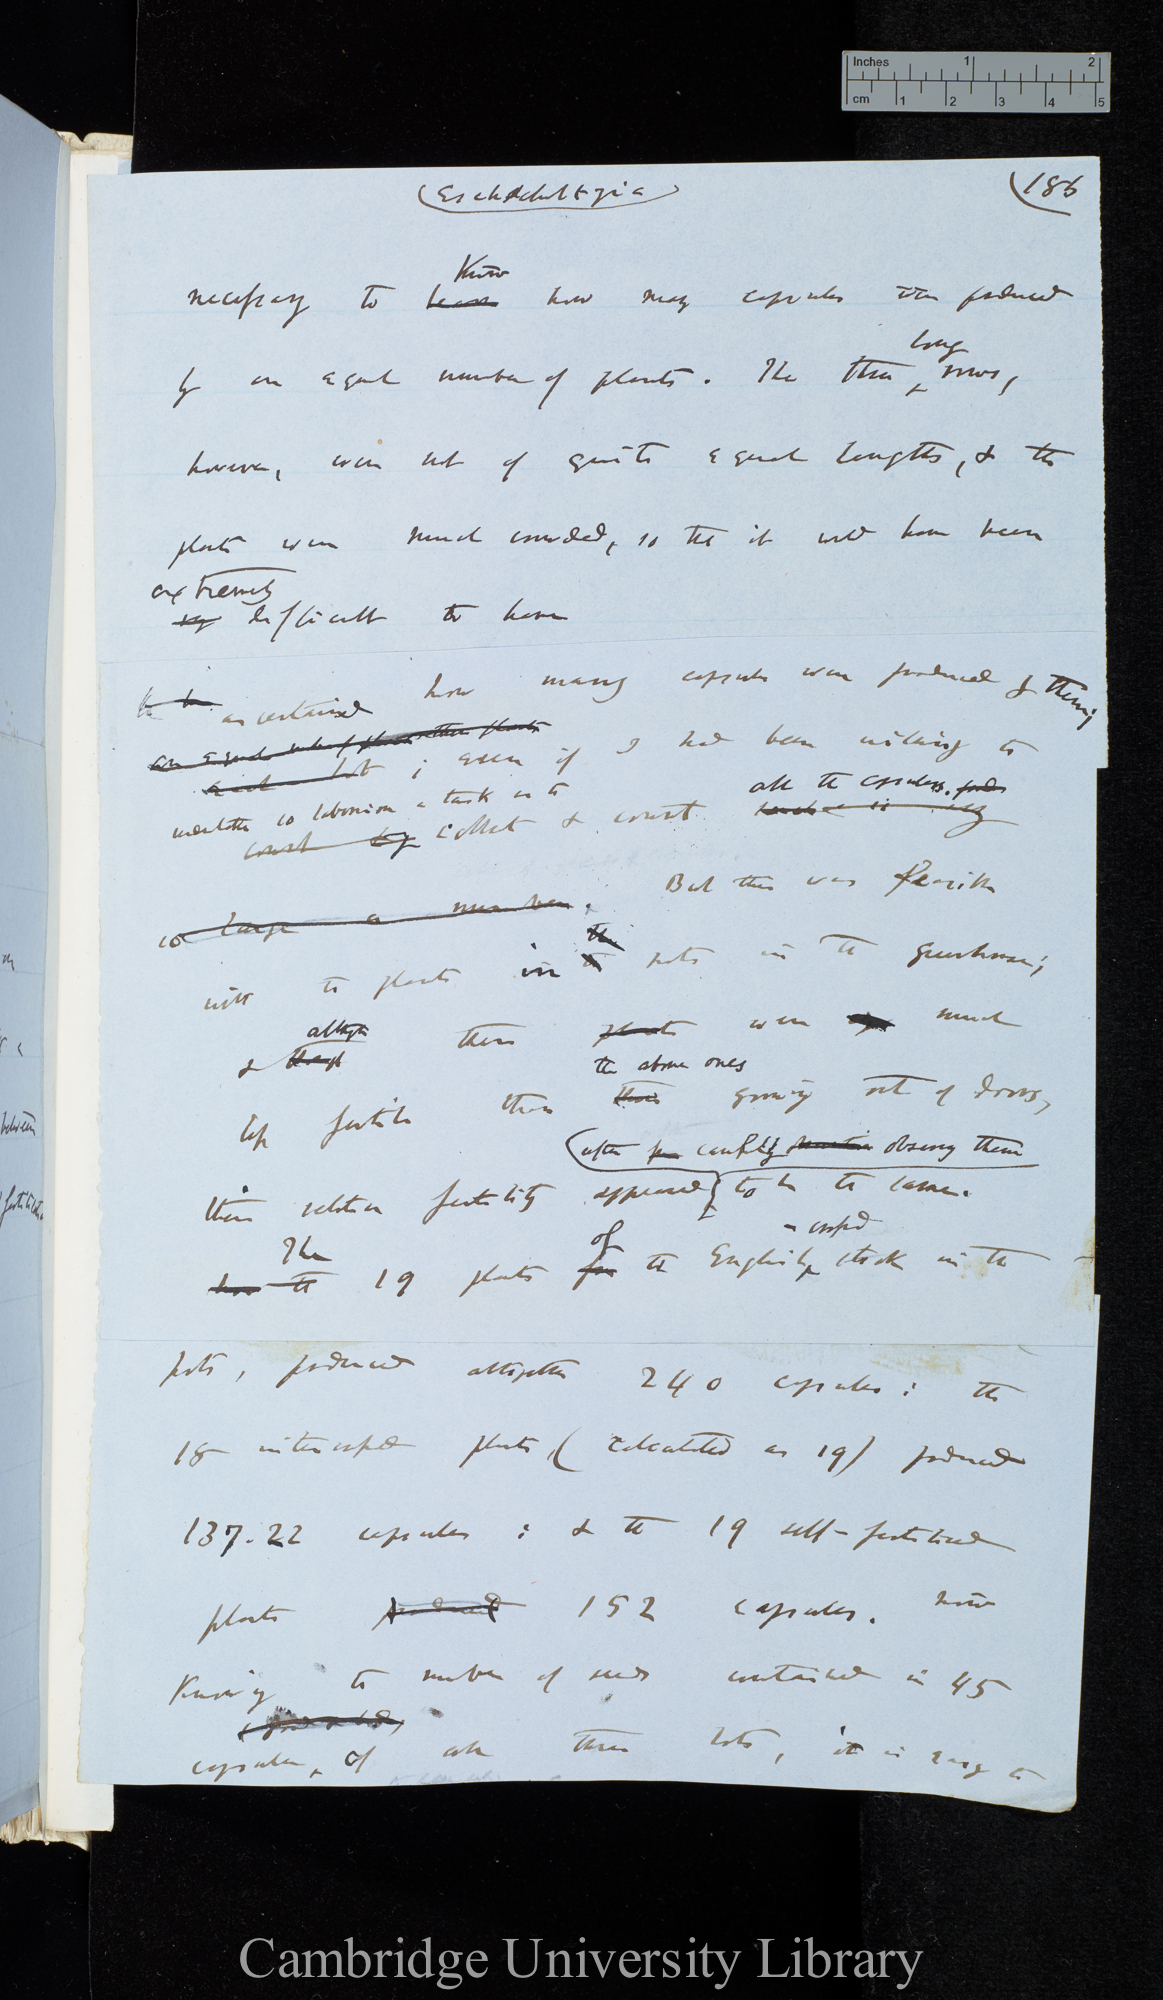 Inches 1 2
cm 1 2 3 4 5
(Eschscholtzia) (186
know
necessary to learn how many capsules were produced
long
by an equal number of plants. The three ^ rows,
however, were not of quite equal lengths, & the
plants were much crowded, so that it would have been
extremely
very difficult to have
ascertained how many capsules were produced by them;
an equal number of plants
each lot ; even if I had been willing to
undertake so laborious a task as to all the capsules.
count collect & count
so large a number. But this was feasible
the
with the plants in the pots in the greenhouse;
although
& though these plants were much
the above ones
less fertile than those growing out of doors,
(after carefully observing them
their relative fertility appeared to be the same.
The of -crossed
the 19 plants from the English ^ stock in the
pots, produced altogether 240 capsules: the
18 intercrossed plants, (calculated as 19) produced
137.22 capsules: & the 19 self-fertilised
plants produced 152 capsules. Now
knowing the number of seeds contained in 45
capsules, of all three lots, it is easy to
between
Cambridge University Library